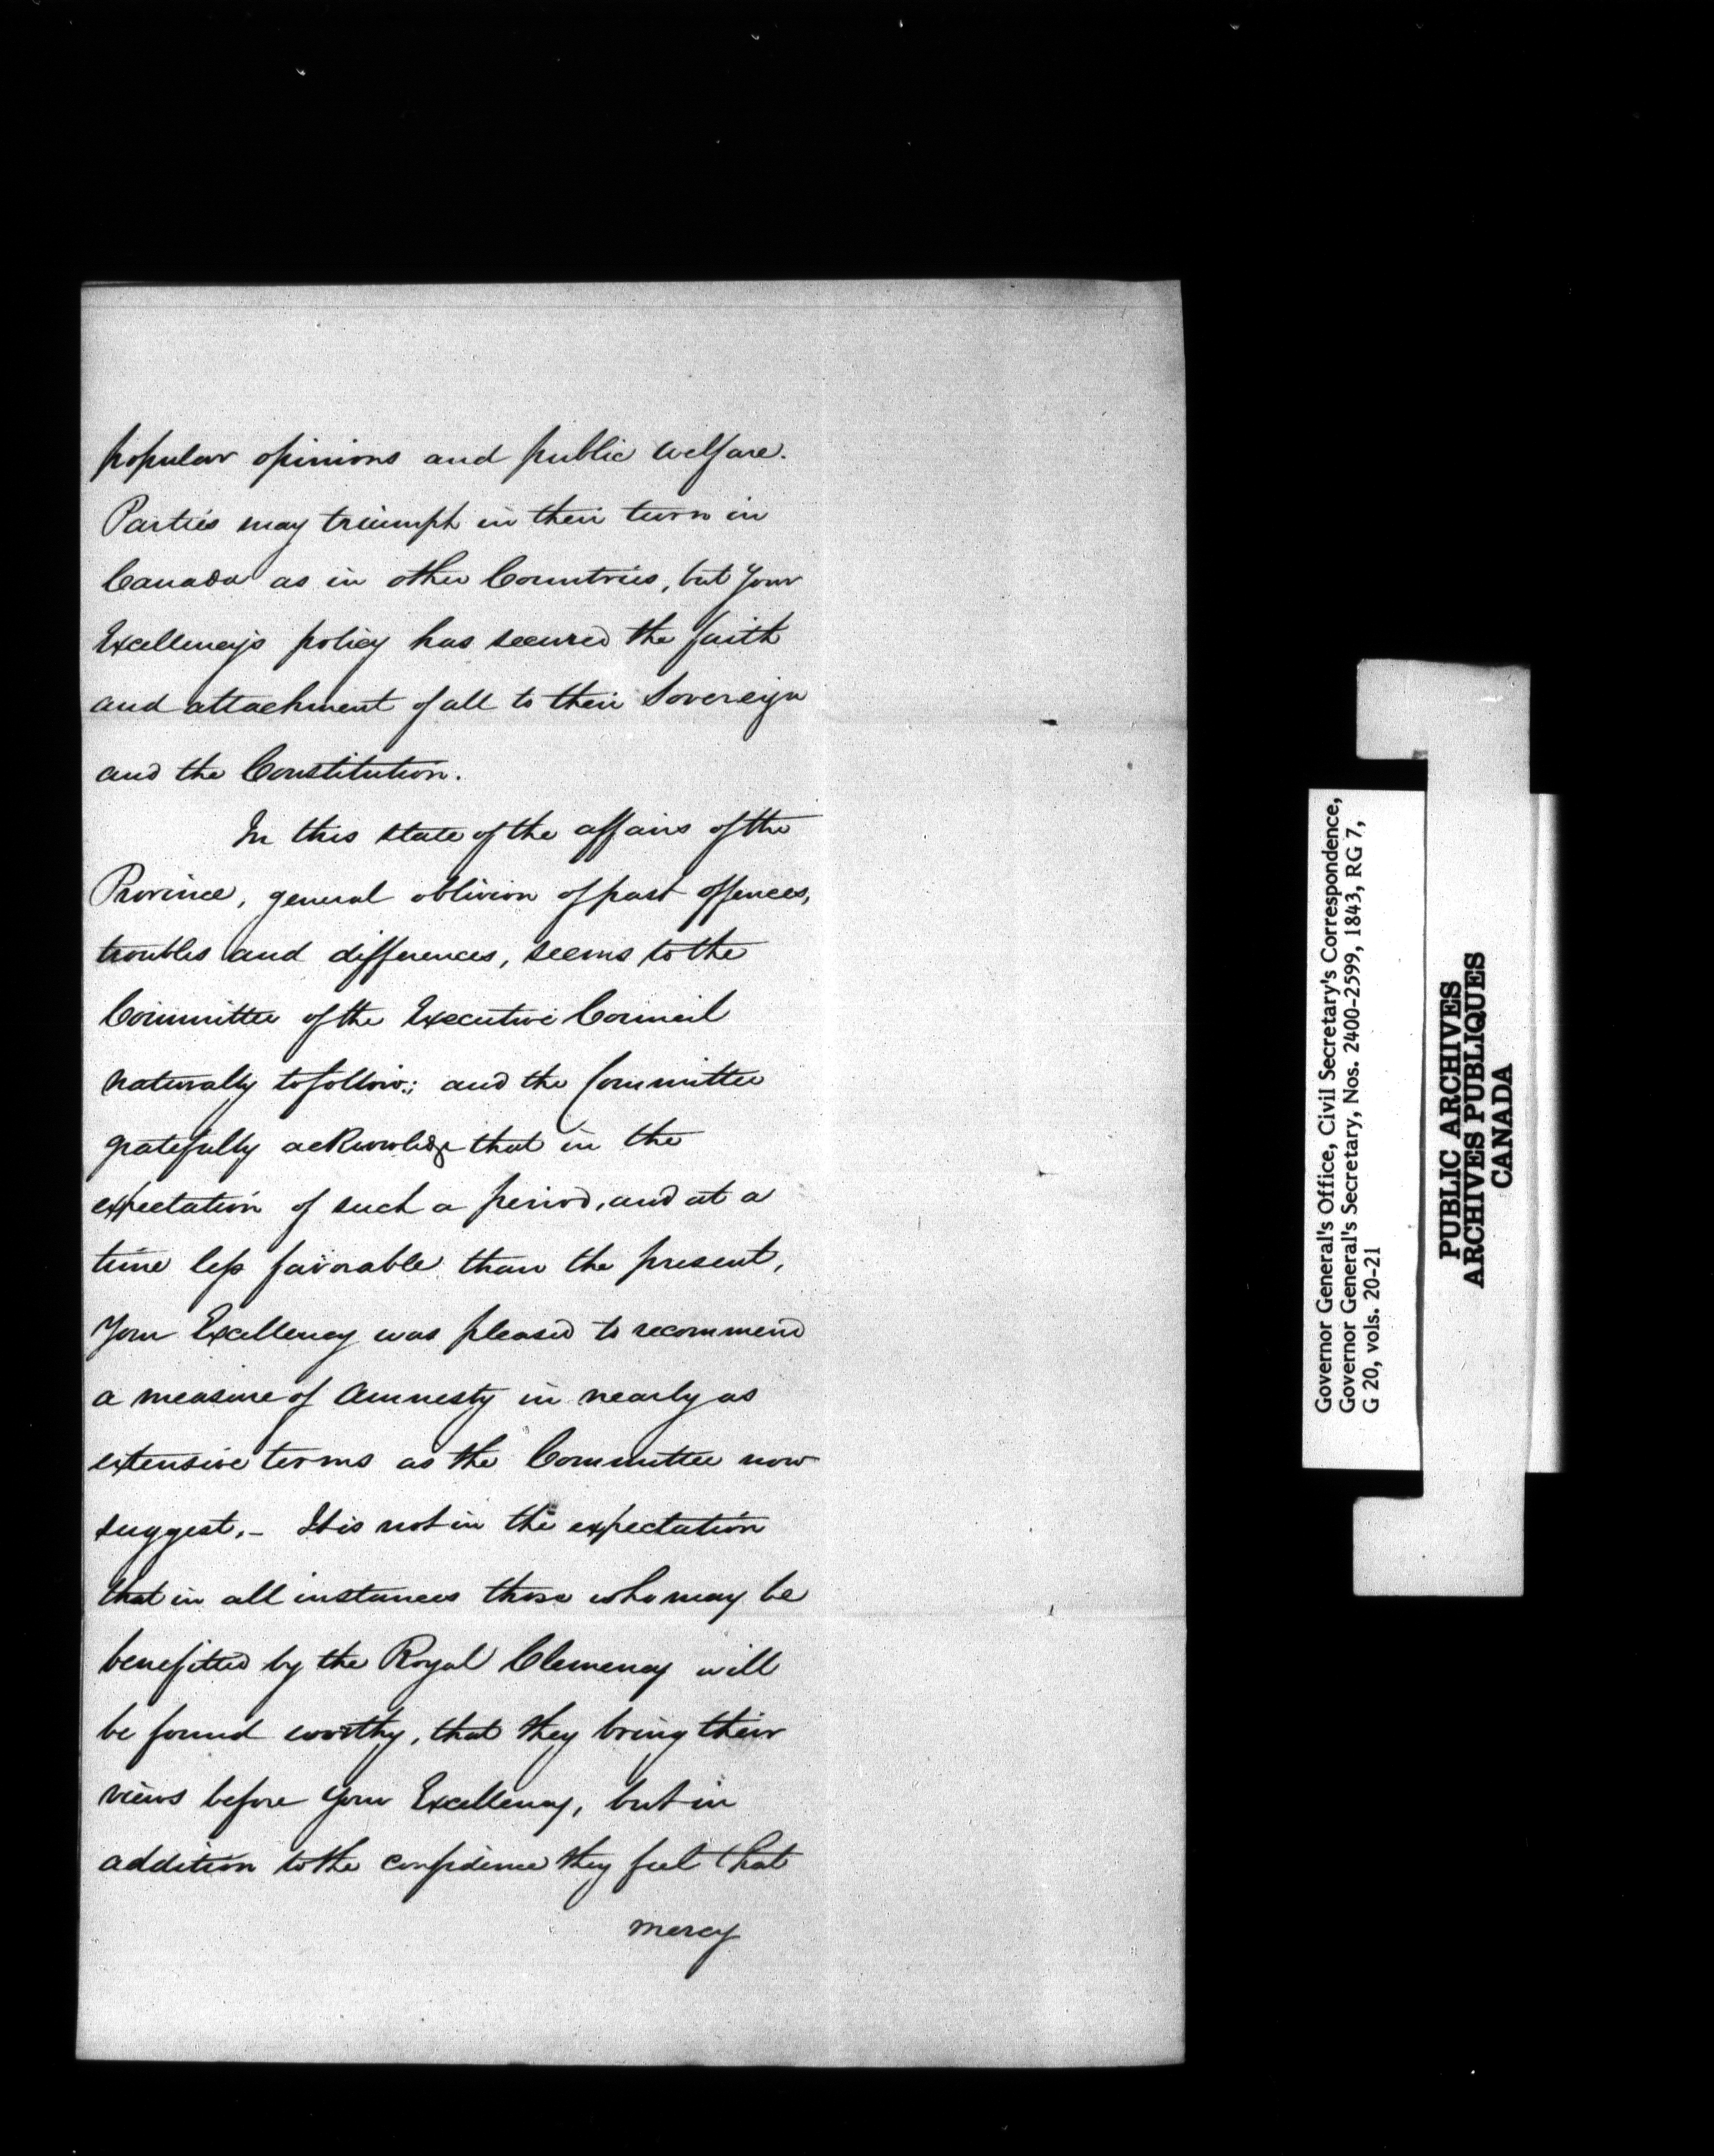 popular opinions and public welfare.
Parties may triumph in their turn in
Canada as in other Countries, but Your
Excellency's policy has secured the faith
and attachment of all to their Sovereign
and the Constitution.
In this state of the affairs of the
Province, general oblivion of past offences,
troubles and differences, seems to the
Committee of the Executive Council
naturally to follow; and the Committee
gratefully acknowledge that in the
expectation of such a period, and at a
time less favorable than the present,
Your Excellency was pleased to recommend
a measure of Amnesty in nearly as
extensive terms as the Committee now
suggest. – It is not in the expectation
that in all instances those who may be
benefitted by the Royal Clemency will
be found worthy, that they bring their
views before Your Excellency, but in
addition to the confidence they feel that
mercy
Governor General's Office, Civil Secretary's Correspondence,
Governor General's Secretary, Nos. 2400-2599, 1843, RG 7,
G 20, vols. 20-21
PUBLIC ARCHIVES
ARCHIVES PUBLIQUES
CANADA